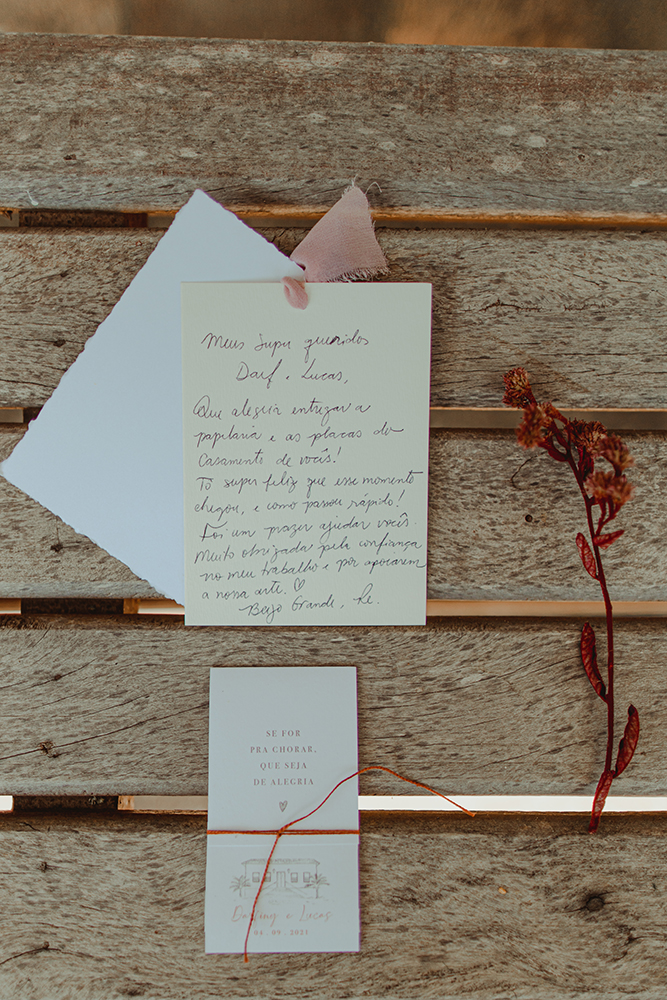 Meus super queridos
Darf e Lucas,
Que alegria entregar a
papelaria e as placas do
casamento de vocês!
Tô super feliz que esse momento
chegou, e como passou rápido!
Foi um prazer ajudar vocês.
Muito obrigada pela confiança
no meu trabalho e por apoiarem
a nossa arte. ♡
Beijo Grande, Re.
SE FOR
PRA CHORAR,
QUE SEJA
DE ALEGRIA
e Lucas
04 . 09 . 2021